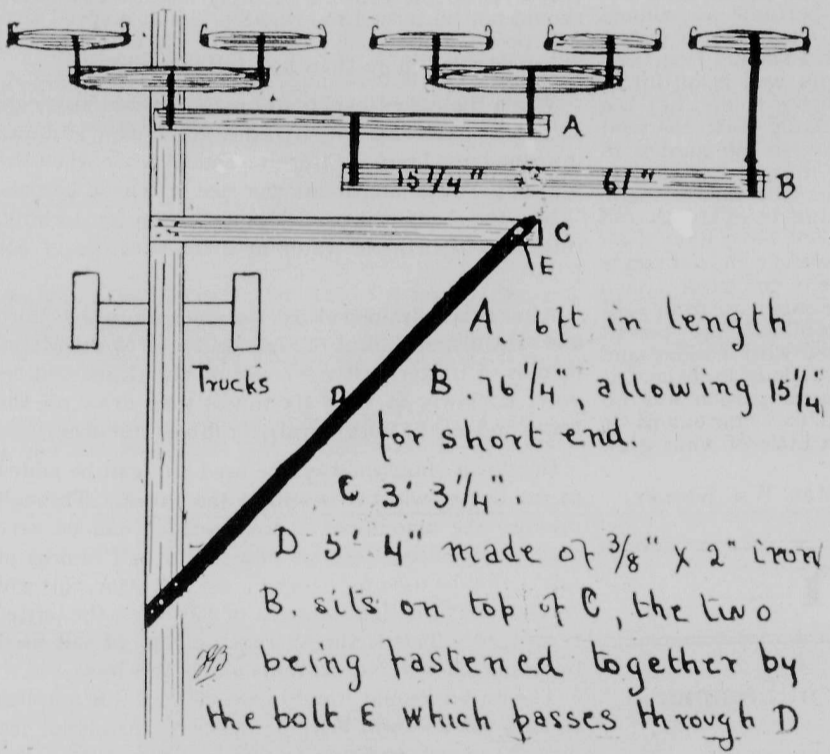 A
15 1/4" 61" B
C
E
A. 6ft in length
Trucks
D
B. 76 1/4", allowing 15 1/4"
for short end.
C 3' 3 1/4"
D 5' 4" made of 3/8" X 2" iron
B. sits on top of C, the two
being fastened together by
the bolt E which passes through D